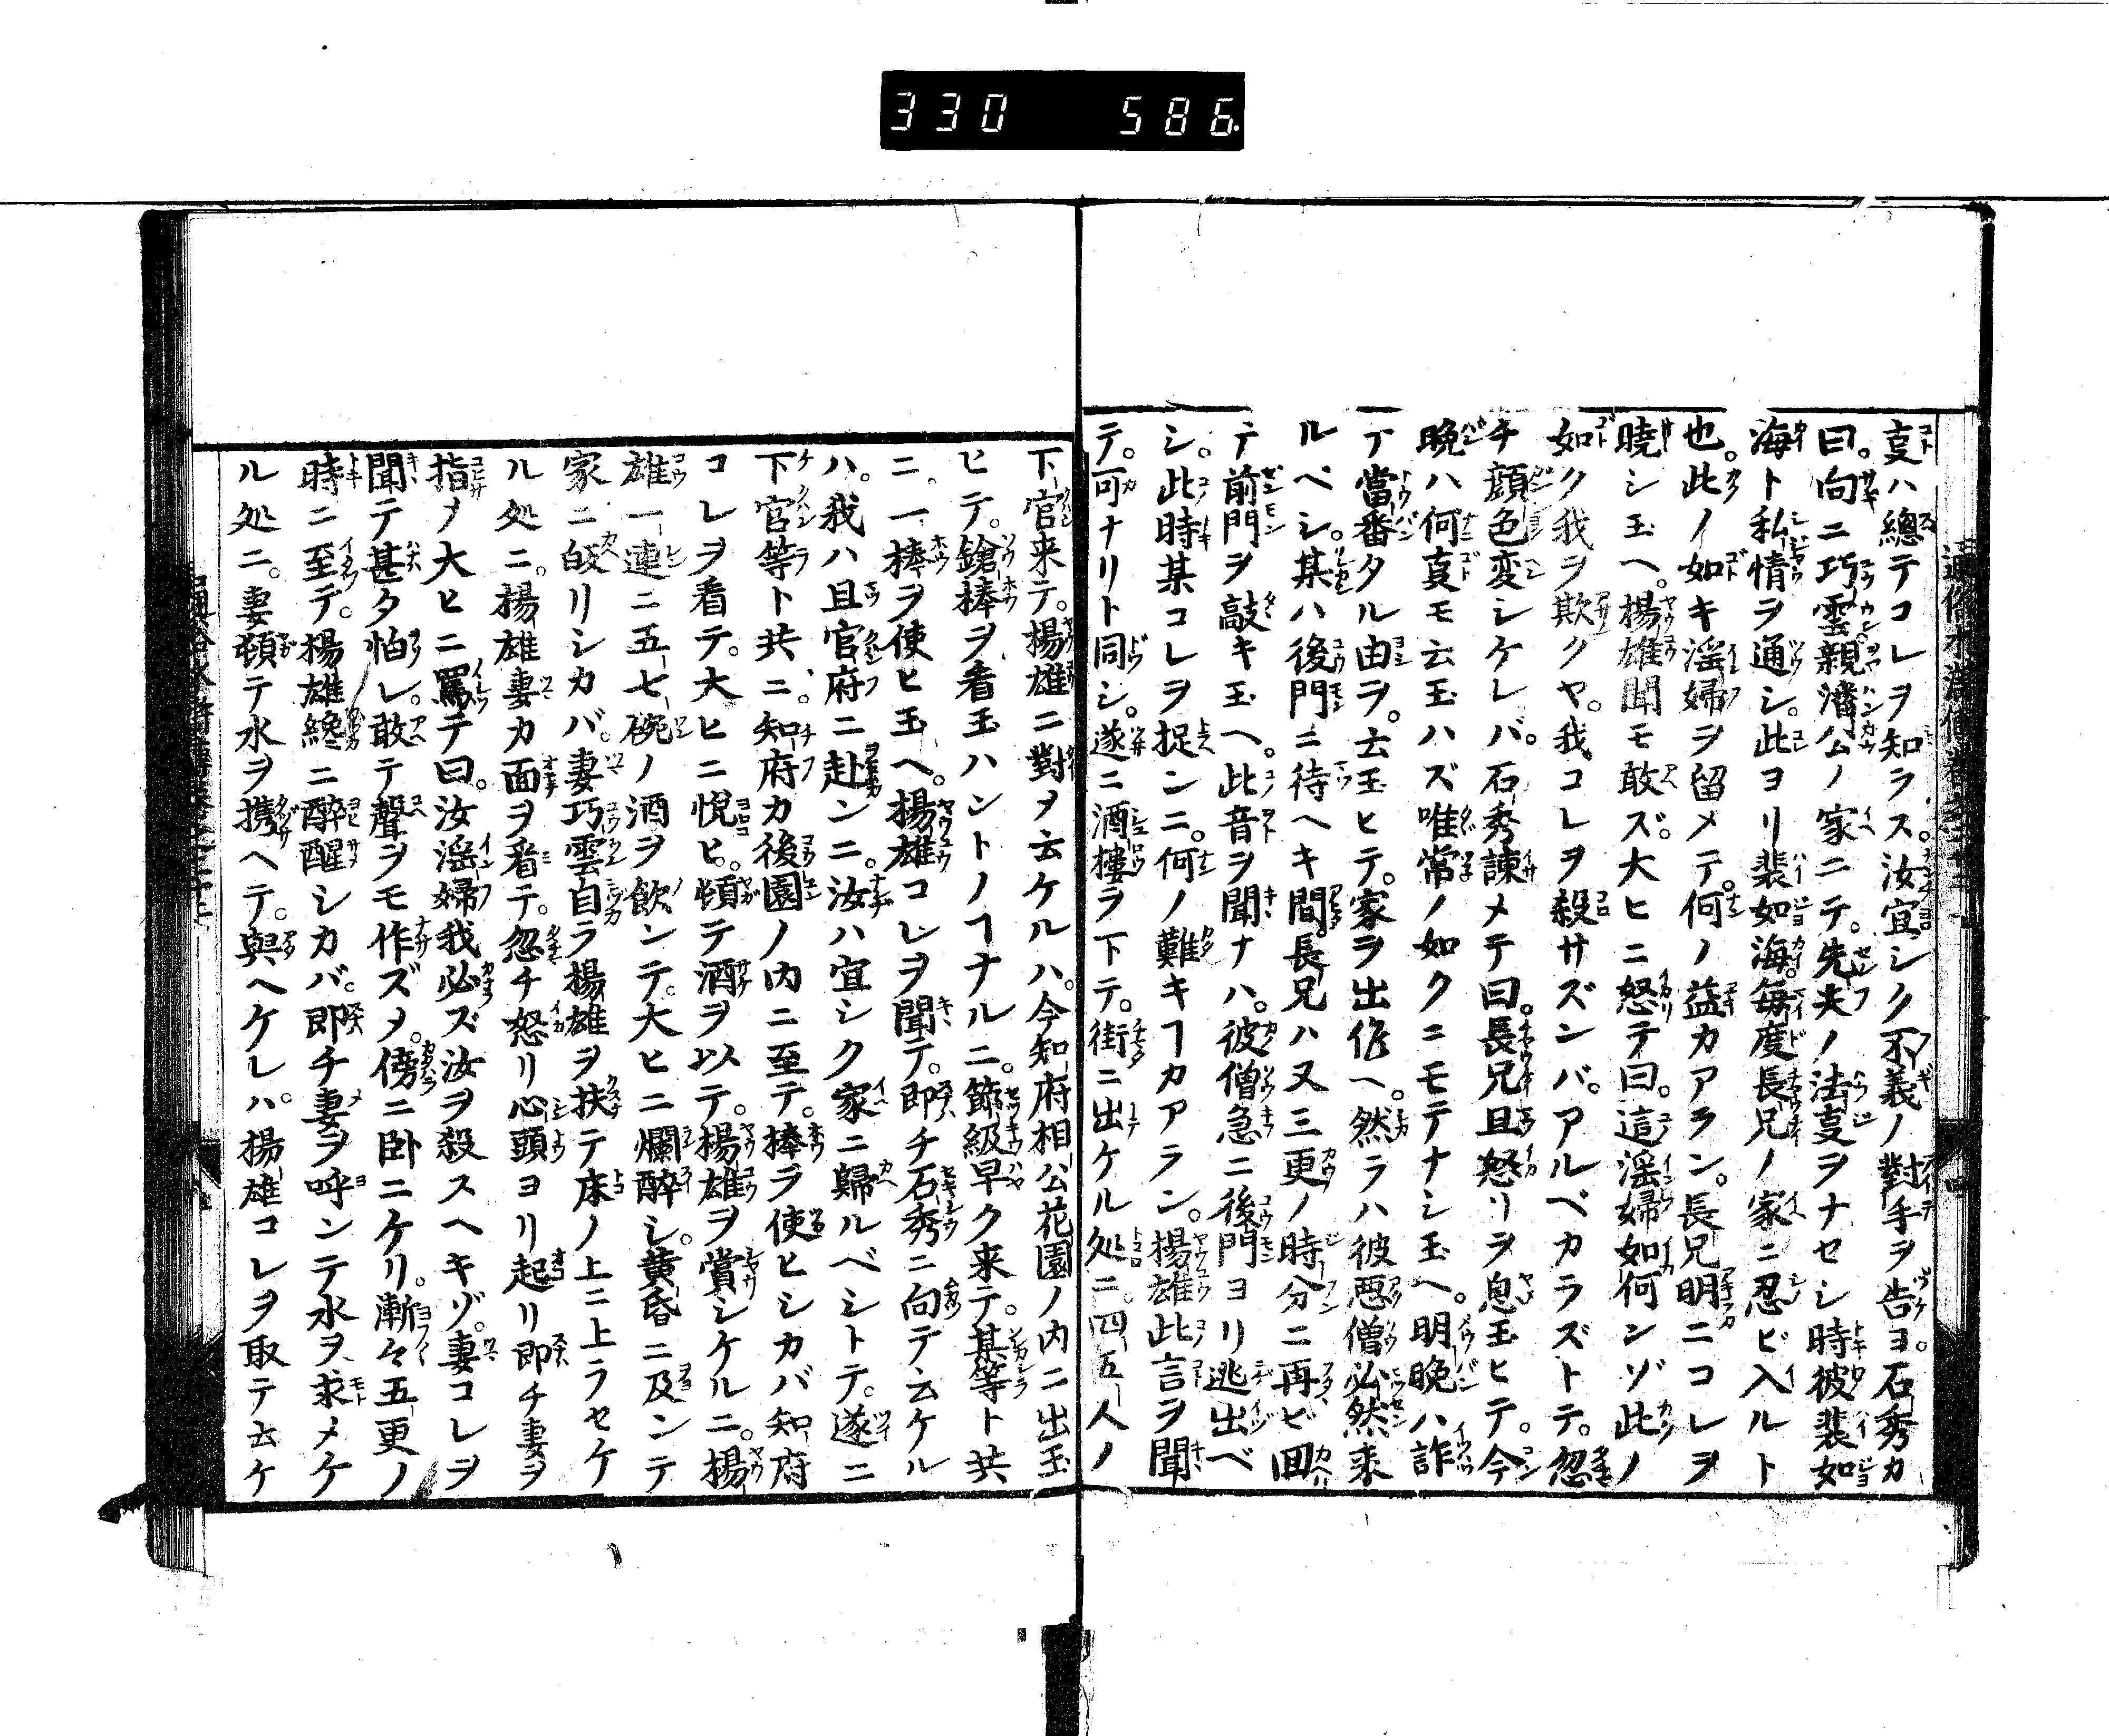 330 586.
亥ハ總テコレヲ知ラス。汝宜シク不義ノ對手ヲ告ヨ。石秀カ
曰。向ニ巧雲親潘公ノ家ニテ。先夫ノ法亥ヲナセシ時彼裴如
海ト私情ヲ通シ。此ヨリ裴如海。毎度長兄ノ家ニ忍ビ入ルト
也。此ノ如キ淫婦ヲ留メテ。何ノ益カアラン。長兄明ニコレヲ
曉シ玉ヘ。楊雄聞モ敢ズ。大ヒニ怒テ曰。這淫婦如何ンゾ此ノ
如ク我ヲ欺クヤ。我コレヲ殺サズンバ。アルベカラズトテ。忽
チ顔色変シケレバ。石秀諌メテ曰。長兄且怒リヲ息玉ヒテ。今
晩ハ何亥モ云玉ハズ唯常ノ如クニモテナシ玉ヘ。明晩ハ詐
テ當番タル由ヲ。云玉ヒテ。家ヲ出作ヘ。然ラハ彼悪僧必然来
ルベシ。某ハ後門ニ待ヘキ間。長兄ハ又三更ノ時分ニ再ビ回
テ前門ヲ敲キ玉ヘ。此音ヲ聞ナハ。彼僧急ニ後門ヨリ逃出ベ
シ。此時某コレヲ捉ンニ。何ノ難キヿカアラン。楊雄此言ヲ聞
テ。可ナリト同シ。遂ニ酒樓ヲ下テ。街ニ出ケル処ニ。四五人ノ
下官来テ。楊雄ニ對メ云ケルハ。今知府相公花園ノ内ニ出玉
ヒテ。鎗棒ヲ看玉ハントノヿナルニ。節級早ク来テ。某等ト共
ニ一棒ヲ使ヒ玉ヘ。楊雄コレヲ聞テ。即チ石秀ニ向テ云ケル
ハ。我ハ且官府ニ赴ンニ。汝ハ宜シク家ニ歸ルベシトテ。遂ニ
下官等ト共ニ。知府カ後園ノ内ニ至テ。棒ヲ使ヒシカバ知府
コレヲ看テ。大ヒニ悦ヒ。頓テ酒ヲ以テ。楊雄ヲ賞シケルニ。楊
雄一連ニ五七碗ノ酒ヲ飲ンテ。大ヒニ爛醉シ。黄昏ニ及ンテ
家ニ皈リシカバ。妻巧雲自ラ楊雄ヲ扶テ床ノ上ニ上ラセケ
ル処ニ。楊雄妻カ面ヲ看テ。忽チ怒リ心頭ヨリ起リ即チ妻ヲ
指メ大ヒニ罵テ曰。汝淫婦我必ズ汝ヲ殺スヘキゾ。妻コレヲ
聞テ甚タ怕レ。敢テ聲ヲモ作ズメ。傍ニ卧ニケリ。漸々五更ノ
時ニ至テ。楊雄纔ニ醉醒シカバ。即チ妻ヲ呼ンテ水ヲ求メケ
ル処ニ。妻頓テ水ヲ携ヘテ。與ヘケレハ。楊雄コレヲ取テ云ケ